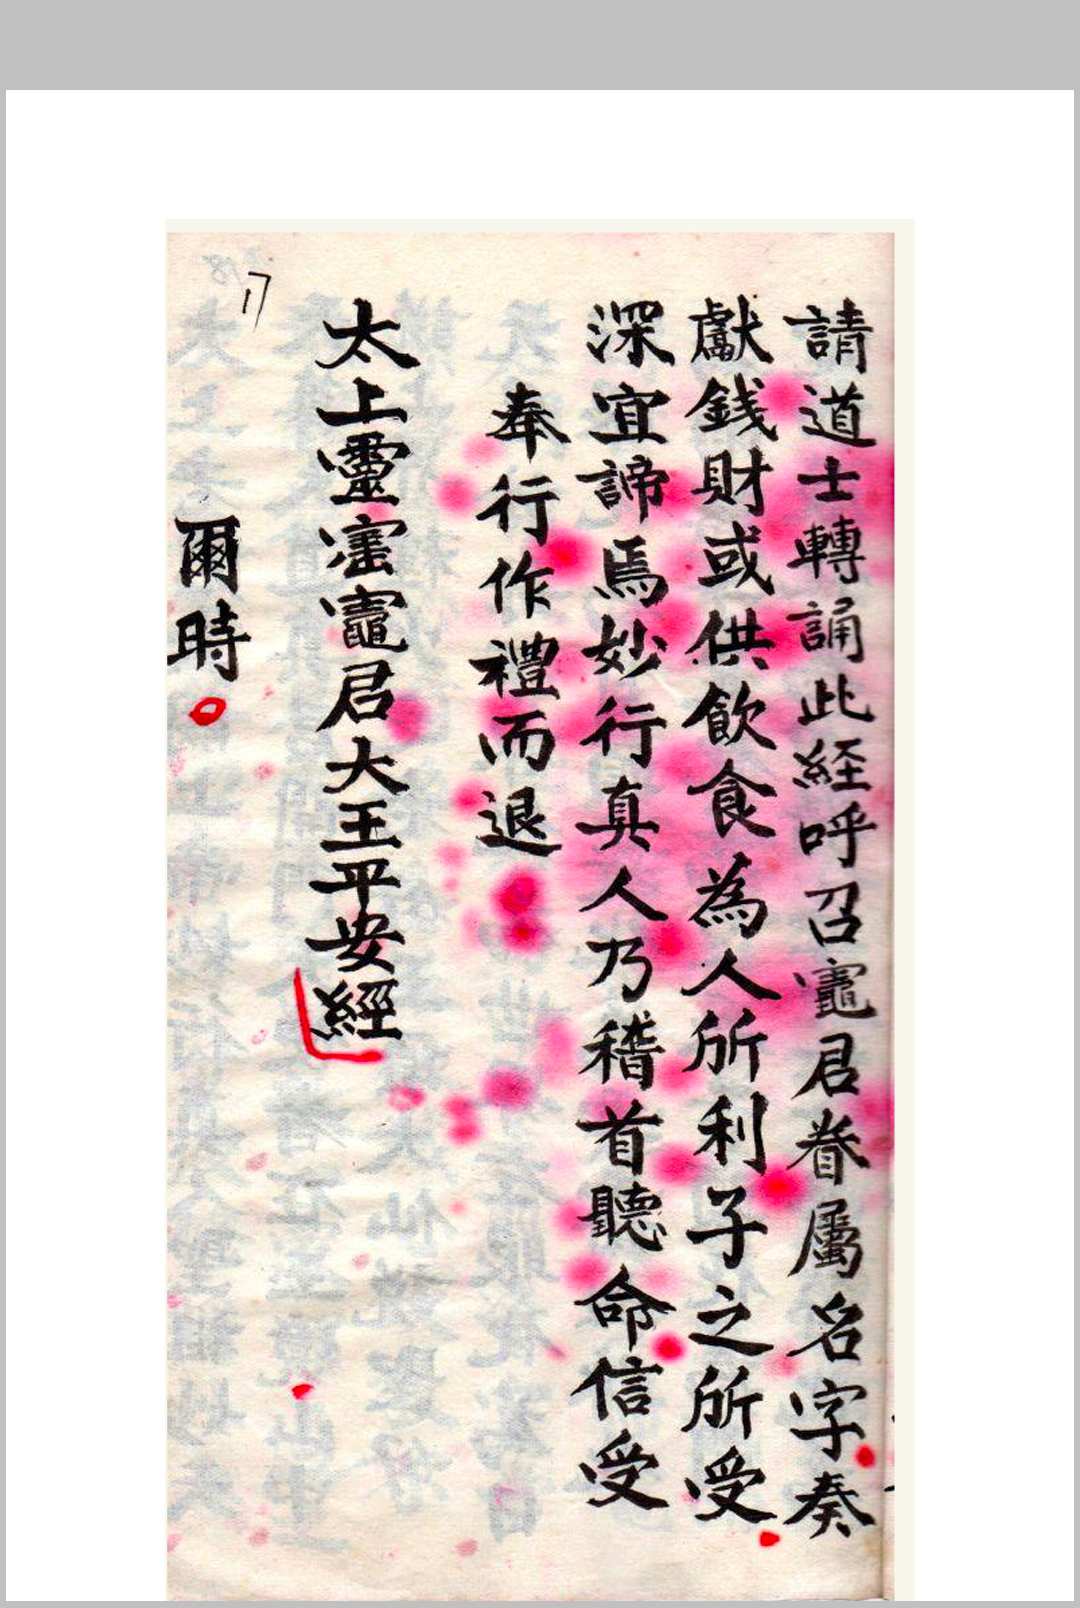 請道士轉誦此経呼召竈君眷屬名字奏
獻錢財或供飲食為人所利子之所受
深宜諦焉妙行真人乃稽首聽命信受
奉行作禮而退
太上靈寚竈君大王平安經
爾時
17